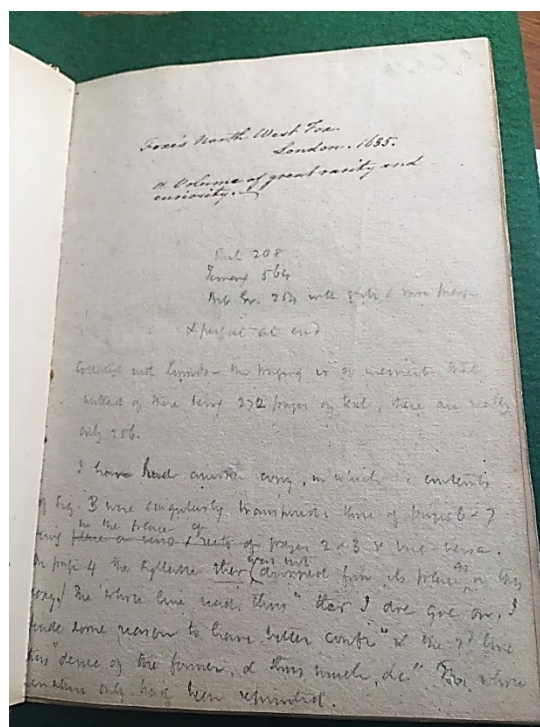 Foxe's North West Fox.
London. 1635.
A Volume of great rarity and
curiosity.
208
564
254 with
& perfect at end
Collated and the paging is so incorrect that
instead of there being 272 pages of text, there are really
only 256.
I have had another copy, in which the contents
of sig. B were singularly transposed: those of pages 6 & 7
being in the place of place on verso & recto of pages 2 & 3 & vice versa.
On page 4 the syllable ther was not dropped from its place as in this
copy. The whole line read thus "ther I doe goe on. I
made some reason to have better confi" & the 2d line
thus "dence of the former, & thus much, &c" The whole
only have been reprinted.